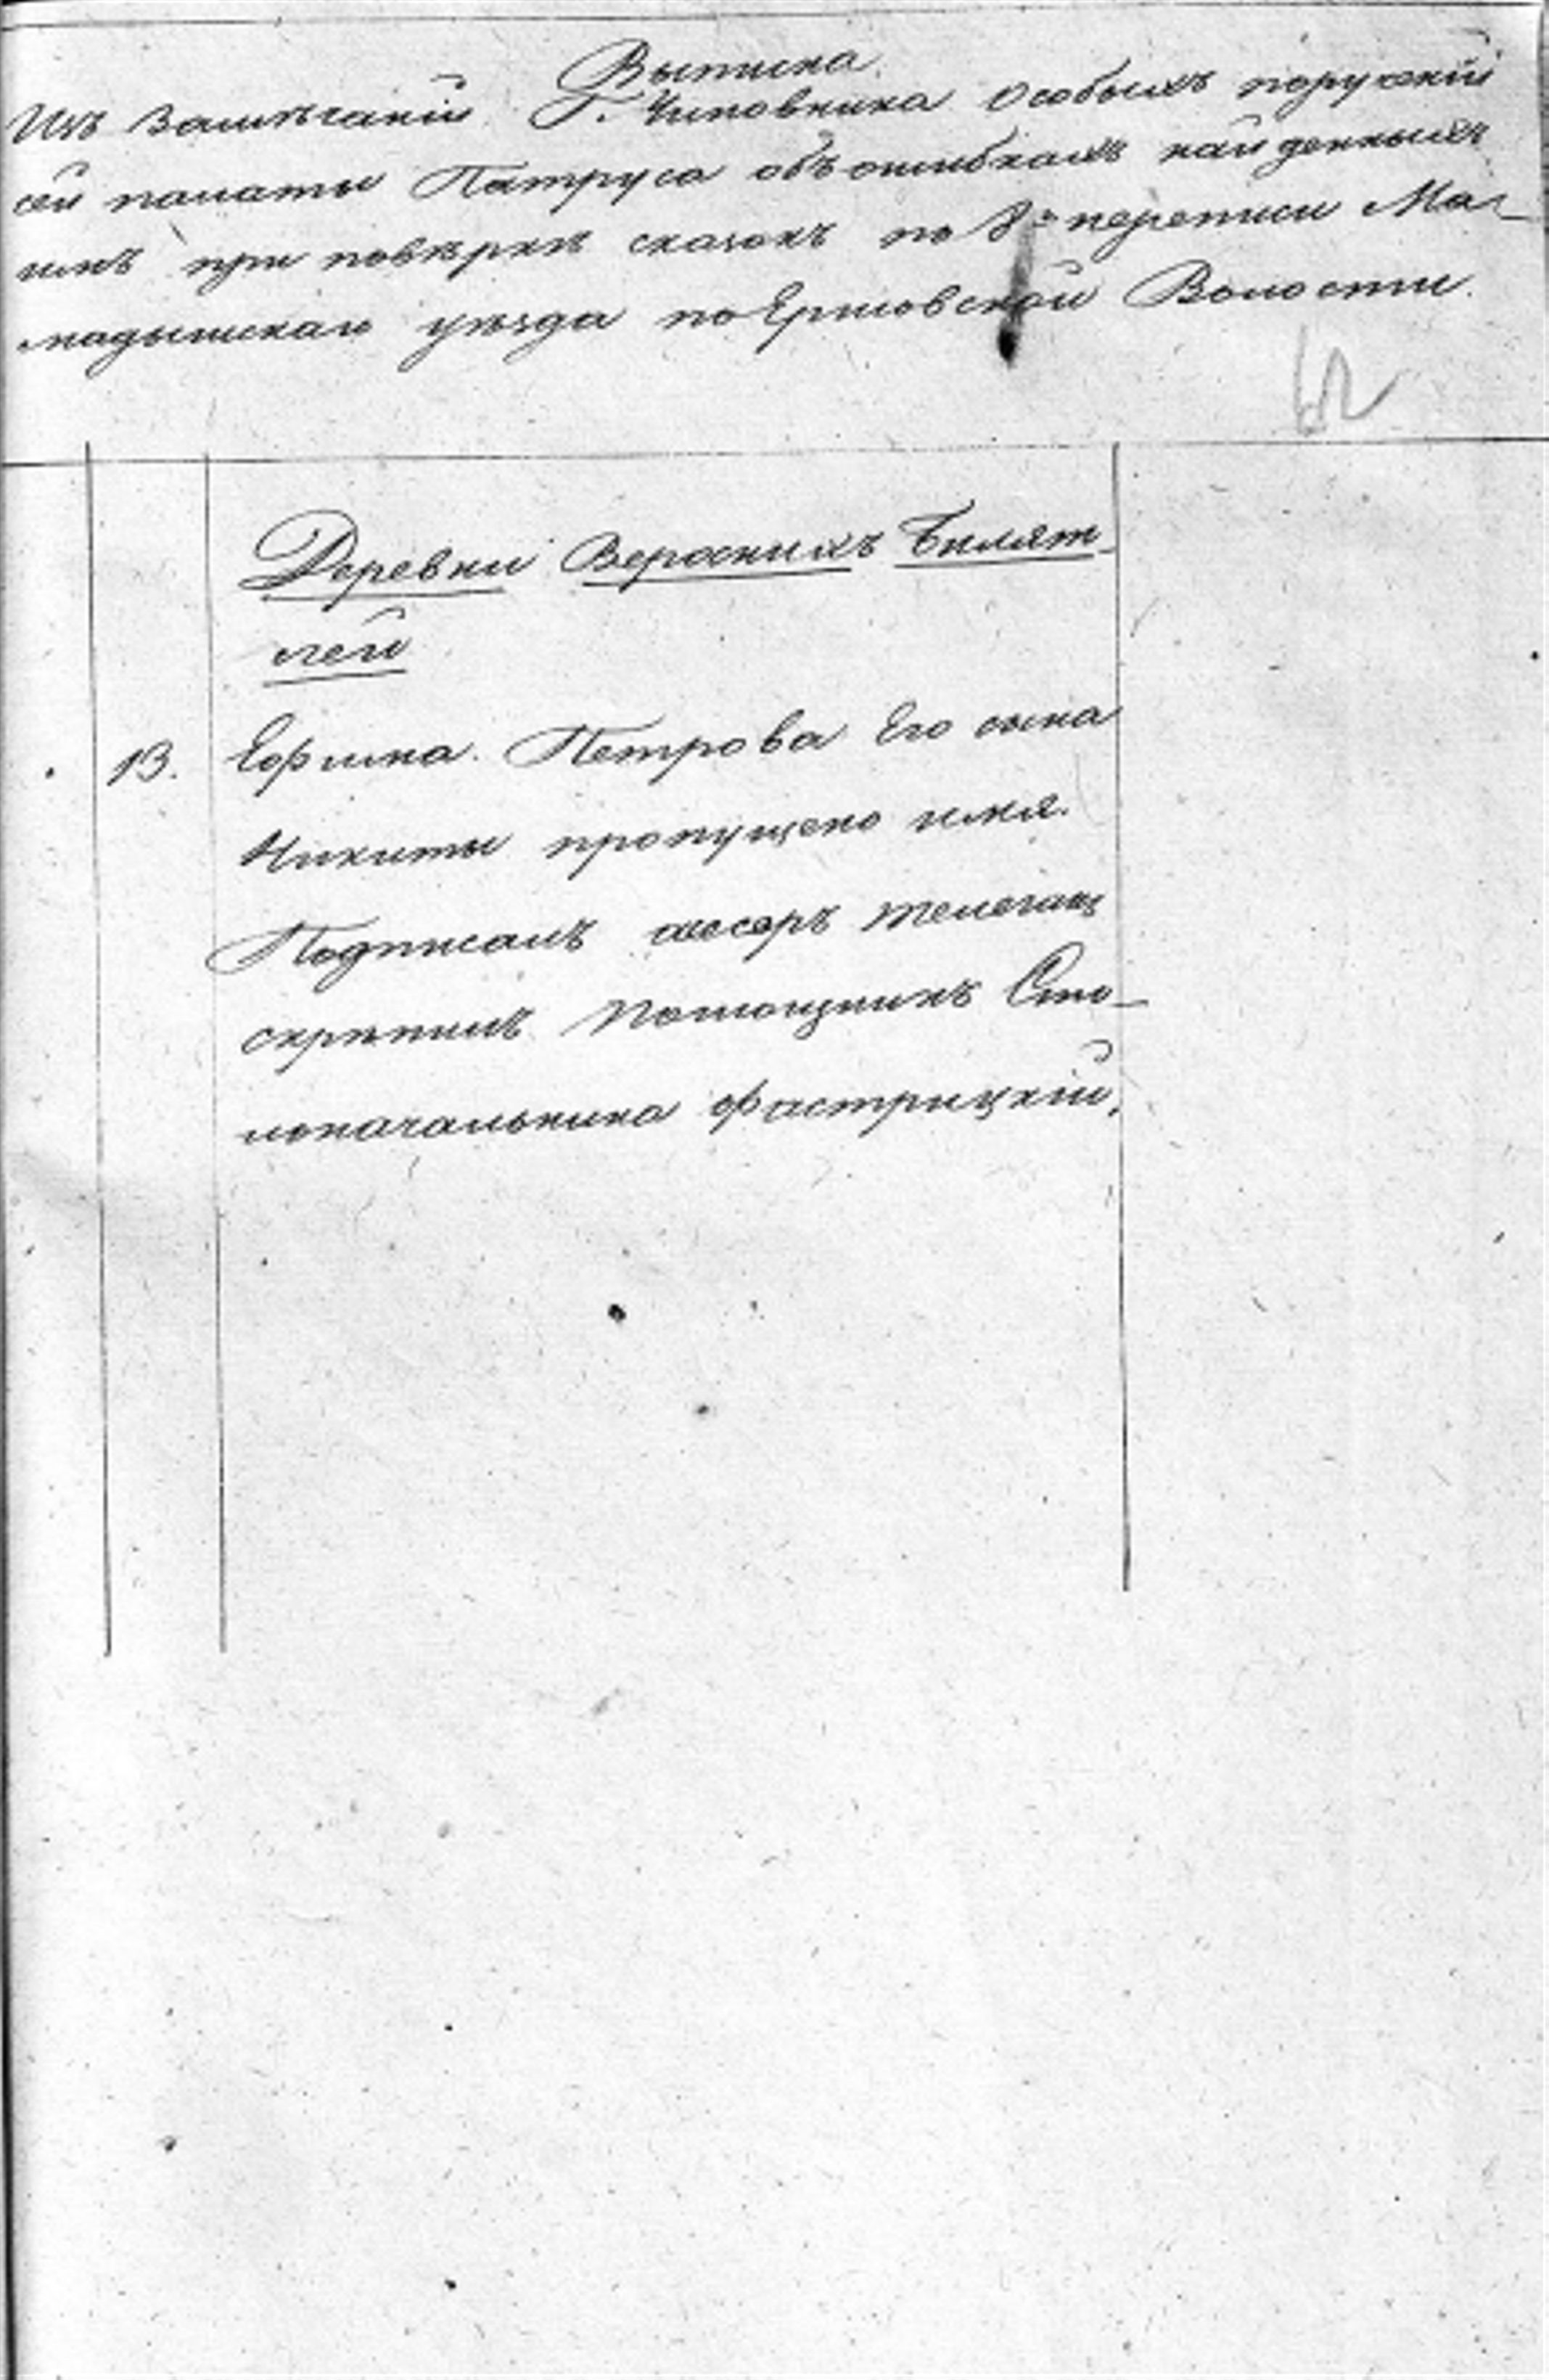 Выписка
Изъ Замѣчаній Г. Чиновника Особыхъ порученій
сей палаты Патруса объ ошибкахъ найденныхъ
имъ при повѣркѣ сказокъ по 8й переписи Ма-
мадышскаго уѣзда по Ершовской Волости.
62
Деревни Верхнихъ Билят-
лей
13. Ефима Петрова Его сына
Никиты пропущено имя.
Подписалъ
скрѣпилъ Помощникъ Сто-
лоначальника Фастрицкій,